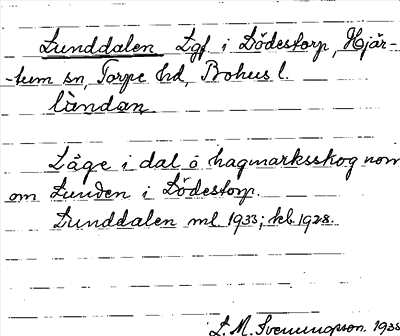 Lunddalen Lgf i Lödestorp, Hjär-
-tum sn, Torpe hd, Bohus l.
lùndan
Läge i dal o hagmarksskog norr
om Lunden i Lödestorp.
Lunddalen ml. 1933; kb. 1928.
L. M. Svenungsson. 1933